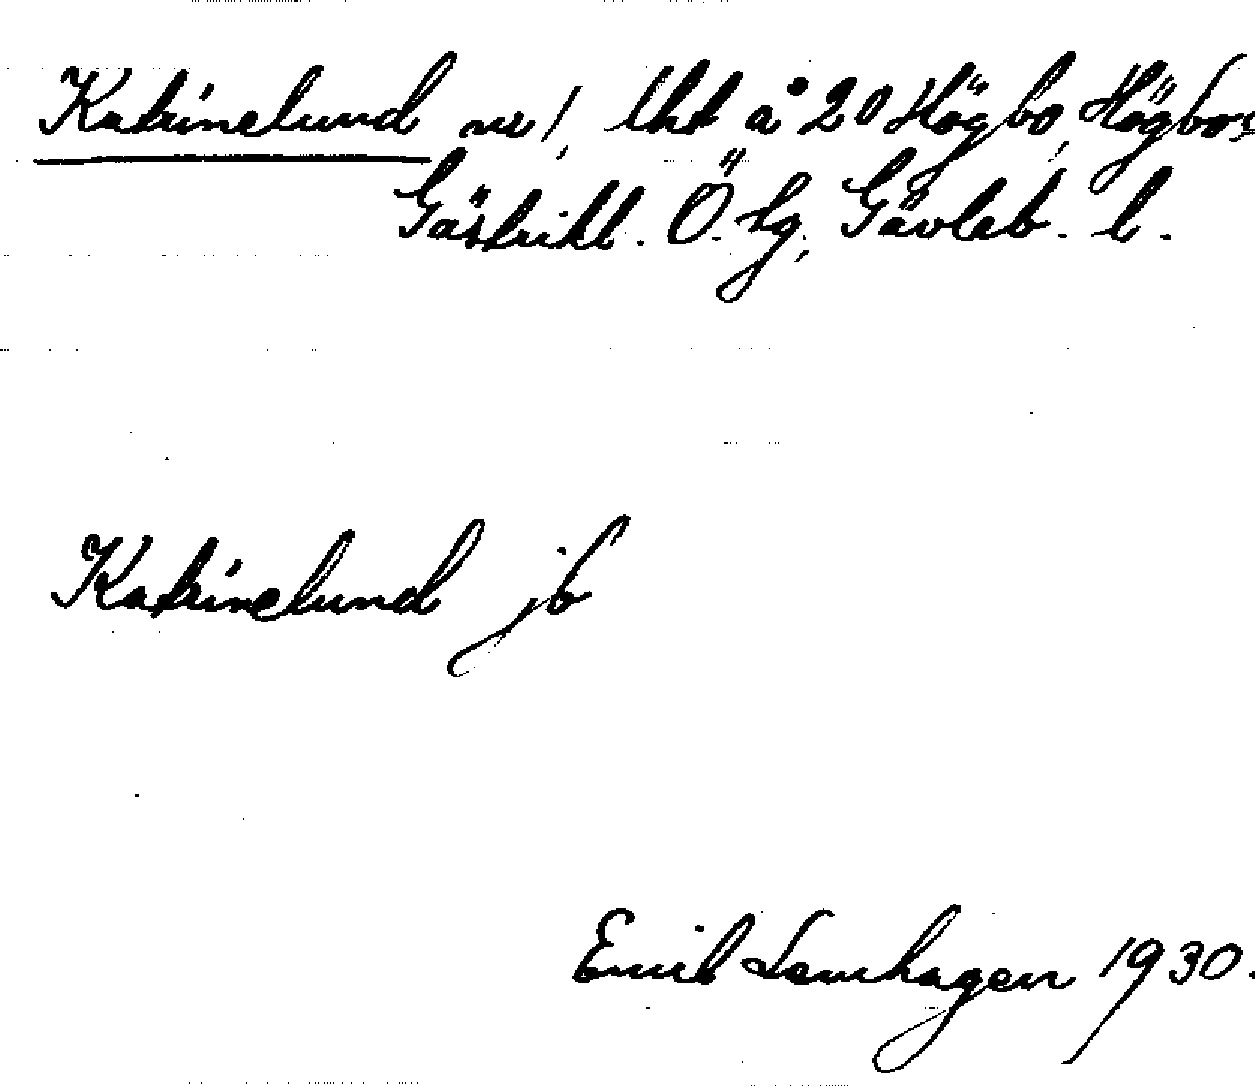 Katrinelund nr 1, lht å 20 Högbo, Högbo s
Gästrikl. Ö. tg, Gävleb. l.
Katrinelund jb
Emil Lemhagen 1930.